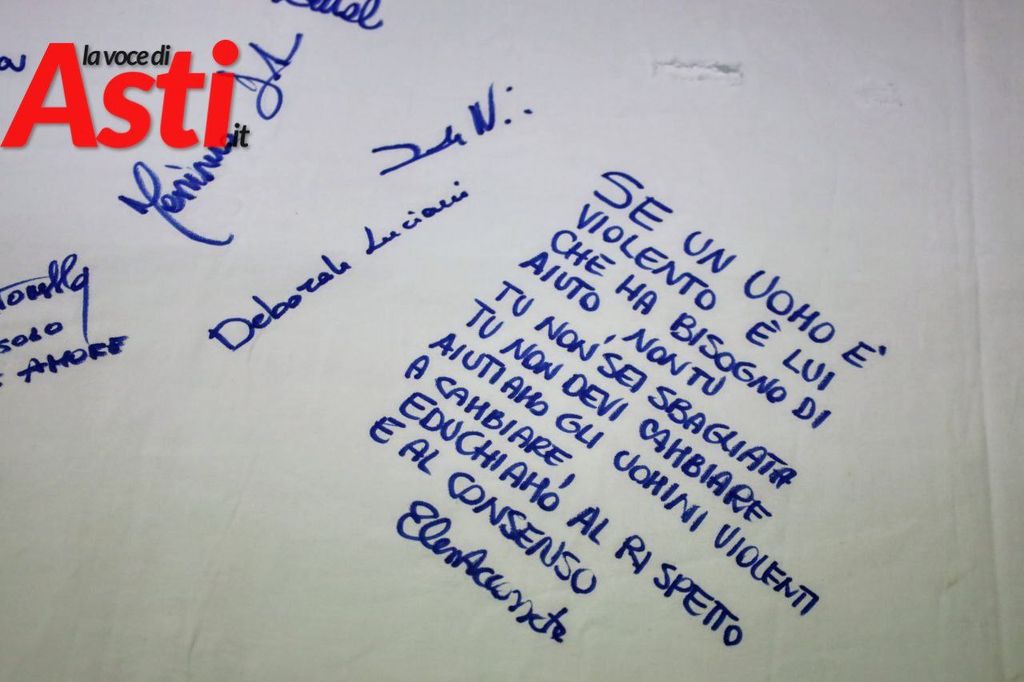 la voce di
Asti
.it
Deborah Luciani
SOLO
AMORE
SE UN UOMO E'
VIOLENTO È LUI
CHE HA BISOGNO DI
AIUTO, NON TU
TU NON SEI SBAGLIATA
TU NON DEVI CAMBIARE
AIUTIAMO GLI UOMINI VIOLENTI
A CAMBIARE,
EDUCHIAMO AL RISPETTO
E AL CONSENSO